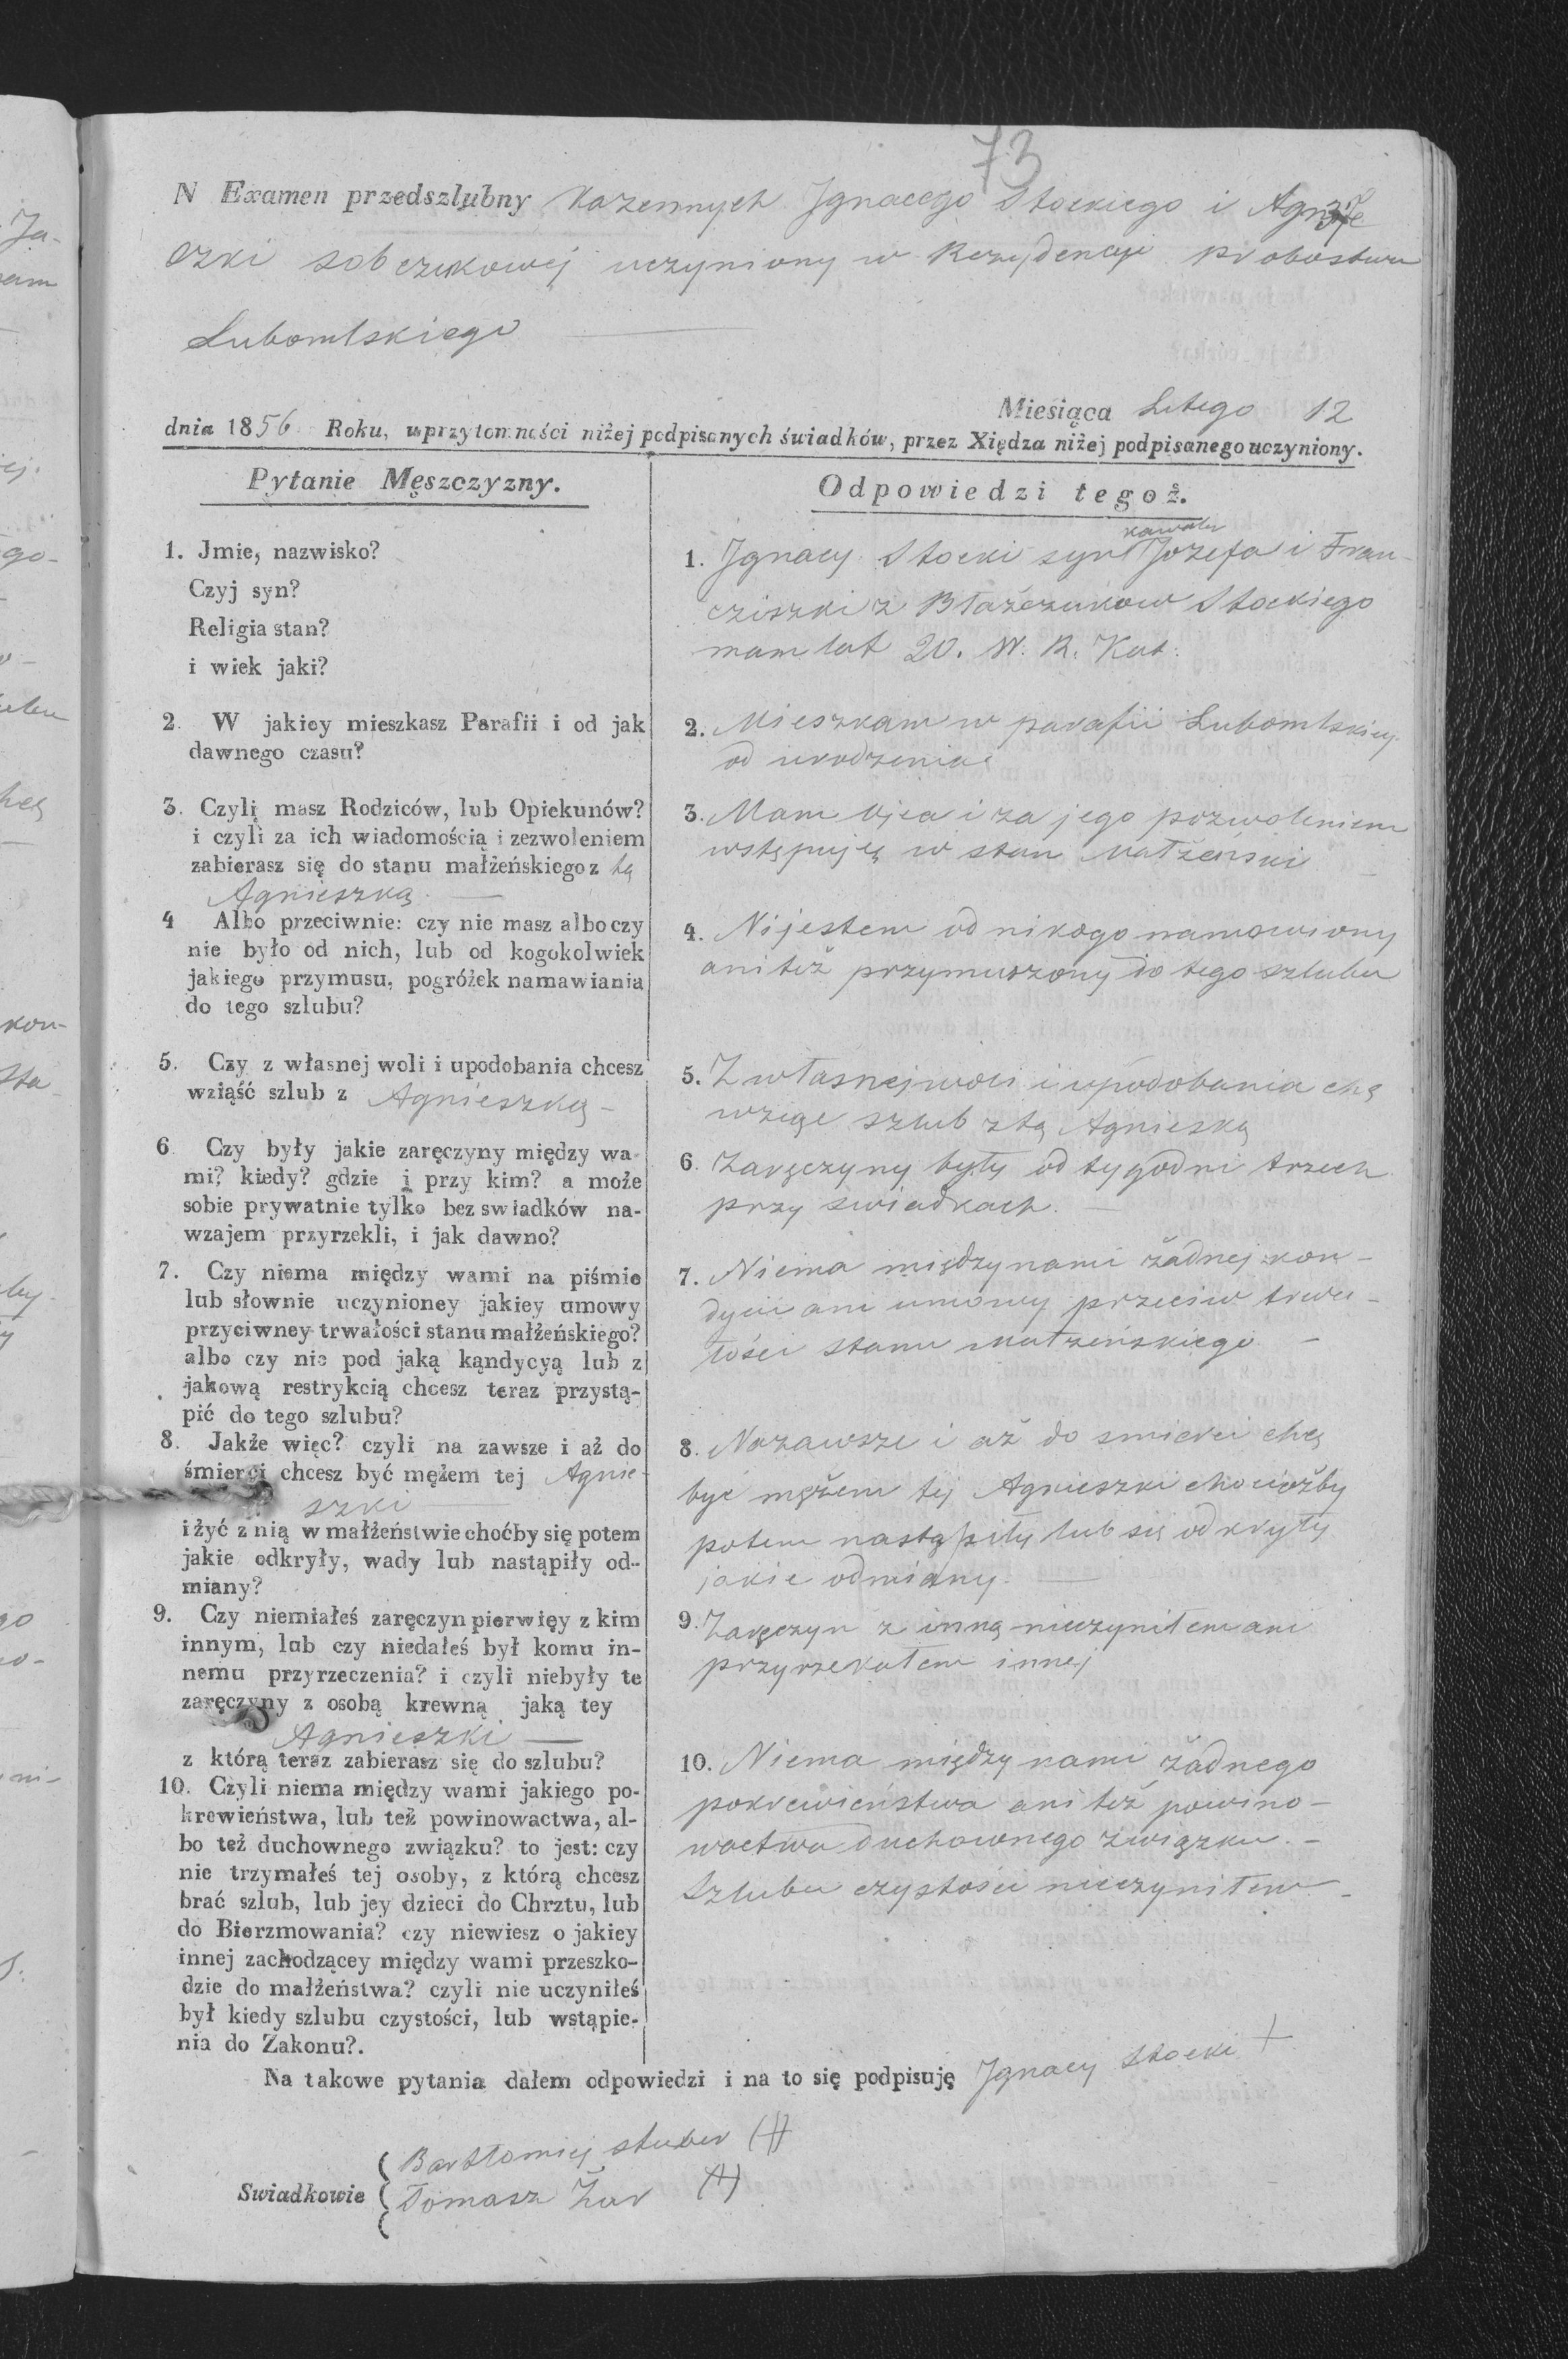 73
N Examen przedszlubny Kazennych Jgnacego Stockiego i Agnie
szki sobczukowej uczyniony w Rezydencyi probostwa
Lubomlskiego
Miesiąca Lutego 12
dnia 1856 Roku, w przytomności niżej podpisanych świadków, przez Xiędza niżej podpisanego uczyniony.
Pytanie Męszczyzny.
1. Jmie, nazwisko?
Czyj syn?
Religia stan?
i wiek jaki?
2. W jakiey mieszkasz Parafii i od jak
dawnego czasu?
3. Czylį masz Rodziców, lub Opiekunów?
i czyli za ich wiadomością i zezwoleniem
zabierasz się do stanu małżeńskiego z tą
Agnieszką
4 Albo przeciwnie: czy nie masz albo czy
nie było od nich, lub od kogokolwiek
jakiego przymusu, pogróżek namawiania
do tego szlubu?
5. Czy z własnej woli i upodobania chcesz
wziąść szlub z Agnieszką –
6 Czy były jakie zaręczyny między wa-
mi? kiedy? gdzie i przy kim? a może
sobie prywatnie tylko bez swiadków na-
wzajem przyrzekli, i jak dawno?
7. Czy niema między wami na piśmie
lub słownie uczynioney jakiey umowy
przyciwney trwałości stanu małżeńskiego?
albo czy nie pod jaką kąndycyą lub z
jakową restrykcią chcesz teraz przystą-
pić do tego szlubu?
8. Jakże więc? czyli na zawsze i aż do
śmierci chcesz być mężem tej Agnie-
szki
i żyć z nią w małżeństwie choćby się potem
jakie odkryły, wady lub nastąpiły od-
miany?
9. Czy niemiałeś zaręczyn pierwięy z kim
innym, lub czy niedałeś był komu in-
nemu przyrzeczenia? i czyli niebyły te
zaręczyny z osobą krewną jaką tey
Agnieszki –
z którą teraz zabierasz się do szlubu?
10. Czyli niema między wami jakiego po-
krewieństwa, lub też powinowactwa, al-
bo też duchownego związku? to jest: czy
nie trzymałeś tej osoby, z którą chcesz
brać szlub, lub jey dzieci do Chrztu, lub
do Bierzmowania? czy niewiesz o jakiey
innej zachodzącey między wami przeszko-
dzie do małżeństwa? czyli nie uczyniłeś
był kiedy szlubu czystości, lub wstąpie-
nia do Zakonu?.
Odpowiedzi tegoż.
kawaler
1. Jgnacy Stocki syn Jozefa i Fran-
cziszki z Błażczuków Stockiego
mam lat 20. W. R. Kat.
2. Mieszkam w parafii Lubomlskiey
od urodzenia
3. Mam Ojca i za jego pozwoleniem
wstępuję w stan Małżeński
4. Nijestem od nikogo namowiony
ani też przymuszony do tego szlubu
5. Z własnej woli i upodobania chcę
wzięe szlub z tą Agnieską
6. Zaręczyny były od tygodni trzech
przy swiadkach. –
7. Niema między nami żadnej kon-
dycii ani umowy przeciw trwa-
łości stanu Małżeńskiego –
8. Nazawsze i aż do smierci chcę
być mężem tej Agnieszki chociażby
potem nastąpiły lub się odkryły
jakie odmiany. –
9. Zaręczyn z inną nieczyniłem ani
przyrzekałem innej
10. Niema między nami żadnego
pokrewieństwa ani też powino-
wactwa duchownego związku. –
Szlubu czystości nieczyniłem –
Na takowe pytania dałem odpowiedzi i na to się podpisuję Jgnacy Stocki +
Bartłomiej stuber (+)
Swiadkowie
Tomasz Żur (+)